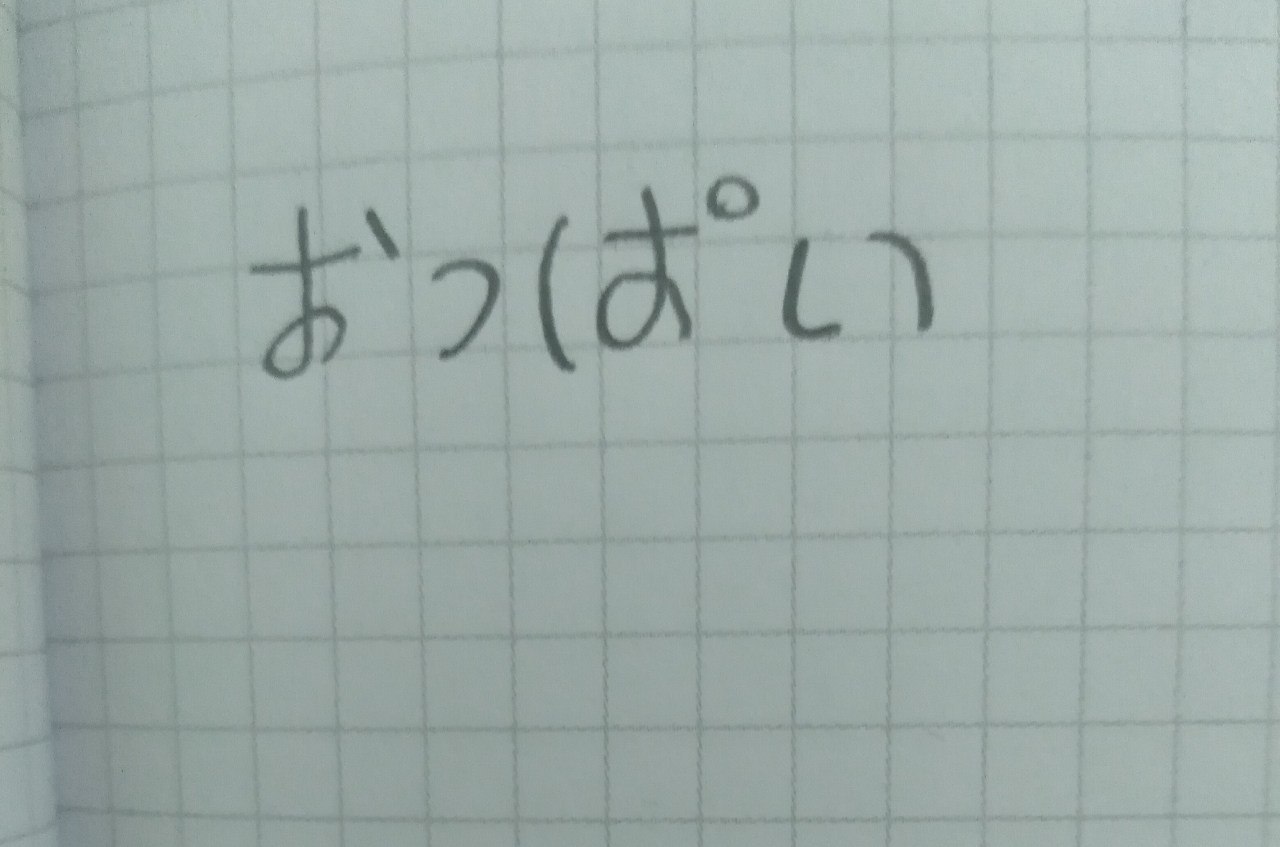 おっぱい